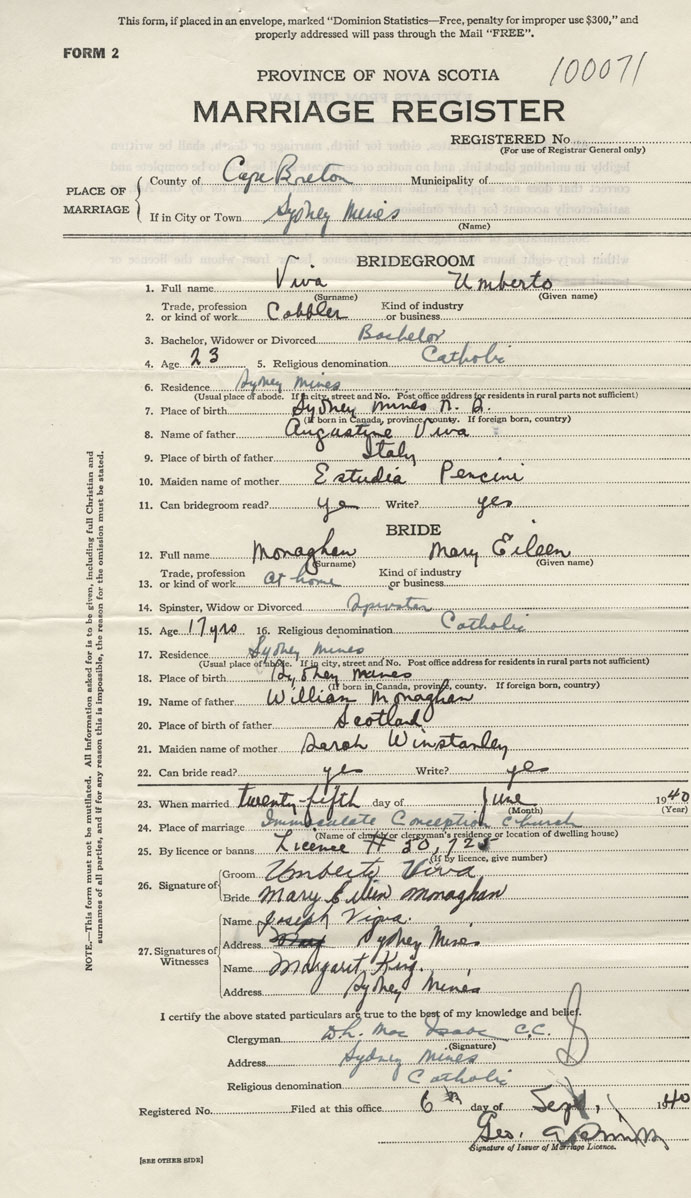 This form, if placed in an envelope, marked "Dominion Statistics—Free, penalty for improper use $300," and
properly addressed will pass through the Mail "FREE".
FORM 2
PROVINCE OF NOVA SCOTIA
100071
MARRIAGE REGISTER
REGISTERED No.
(For use of Registrar General only)
PLACE OF MARRIAGE
County of Cape Breton Municipality of
If in City or Town Sydney Mines
(Name)
BRIDEGROOM
1. Full name Viva Umberto
(Surname) (Given name)
2. Trade, profession or kind of work Cobbler Kind of industry or business
3. Bachelor, Widower or Divorced Bachelor
4. Age 23 5. Religious denomination Catholic
6. Residence Sydney Mines
(Usual place of abode. If in city, street and No. Post office address for residents in rural parts not sufficient)
7. Place of birth Sydney Mines N. S.
(If born in Canada, province, county. If foreign born, country)
8. Name of father Augustine Viva
9. Place of birth of father Italy
10. Maiden name of mother Estudia Pencini
11. Can bridegroom read? yes Write? yes
BRIDE
12. Full name Monaghan Mary Eileen
(Surname) (Given name)
13. Trade, profession or kind of work at home Kind of industry or business
14. Spinster, Widow or Divorced Spinster
15. Age 17 yrs 16. Religious denomination Catholic
17. Residence Sydney Mines
(Usual place of abode. If in city, street and No. Post office address for residents in rural parts not sufficient)
18. Place of birth Sydney Mines
(If born in Canada, province, county. If foreign born, country)
19. Name of father William Monaghan
20. Place of birth of father Scotland
21. Maiden name of mother Sarah Winstanley
22. Can bride read? yes Write? yes
23. When married twenty-fifth day of June 1940
(Month) (Year)
24. Place of marriage Immaculate Conception Church
(Name of church or clergyman's residence or location of dwelling house)
25. By licence or banns Licence # 50,725
(If by licence, give number)
26. Signature of
Groom Umberto Viva
Bride Mary Eileen Monaghan
27. Signatures of Witnesses
Name Joseph
Address Sydney Mines
Name Margaret King.
Address Sydney Mines
I certify the above stated particulars are true to the best of my knowledge and belief.
Clergyman D.h. Mac Isaac C.C.
(Signature)
Address Sydney Mines
Religious denomination Catholic
Registered No. Filed at this office 6th day of Sept, 1940
Geo.
Signature of Issuer of Marriage Licence.
[SEE OTHER SIDE]
NOTE.—This form must not be mutilated. All information asked for is to be given, including full Christian and
surnames of all parties, and if for any reason this is impossible, the reason for the omission must be stated.